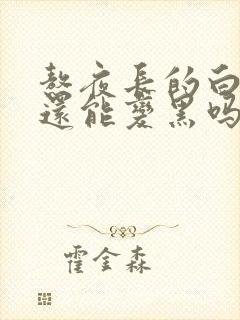 熬夜長的白
還能變黑吗
霍金森